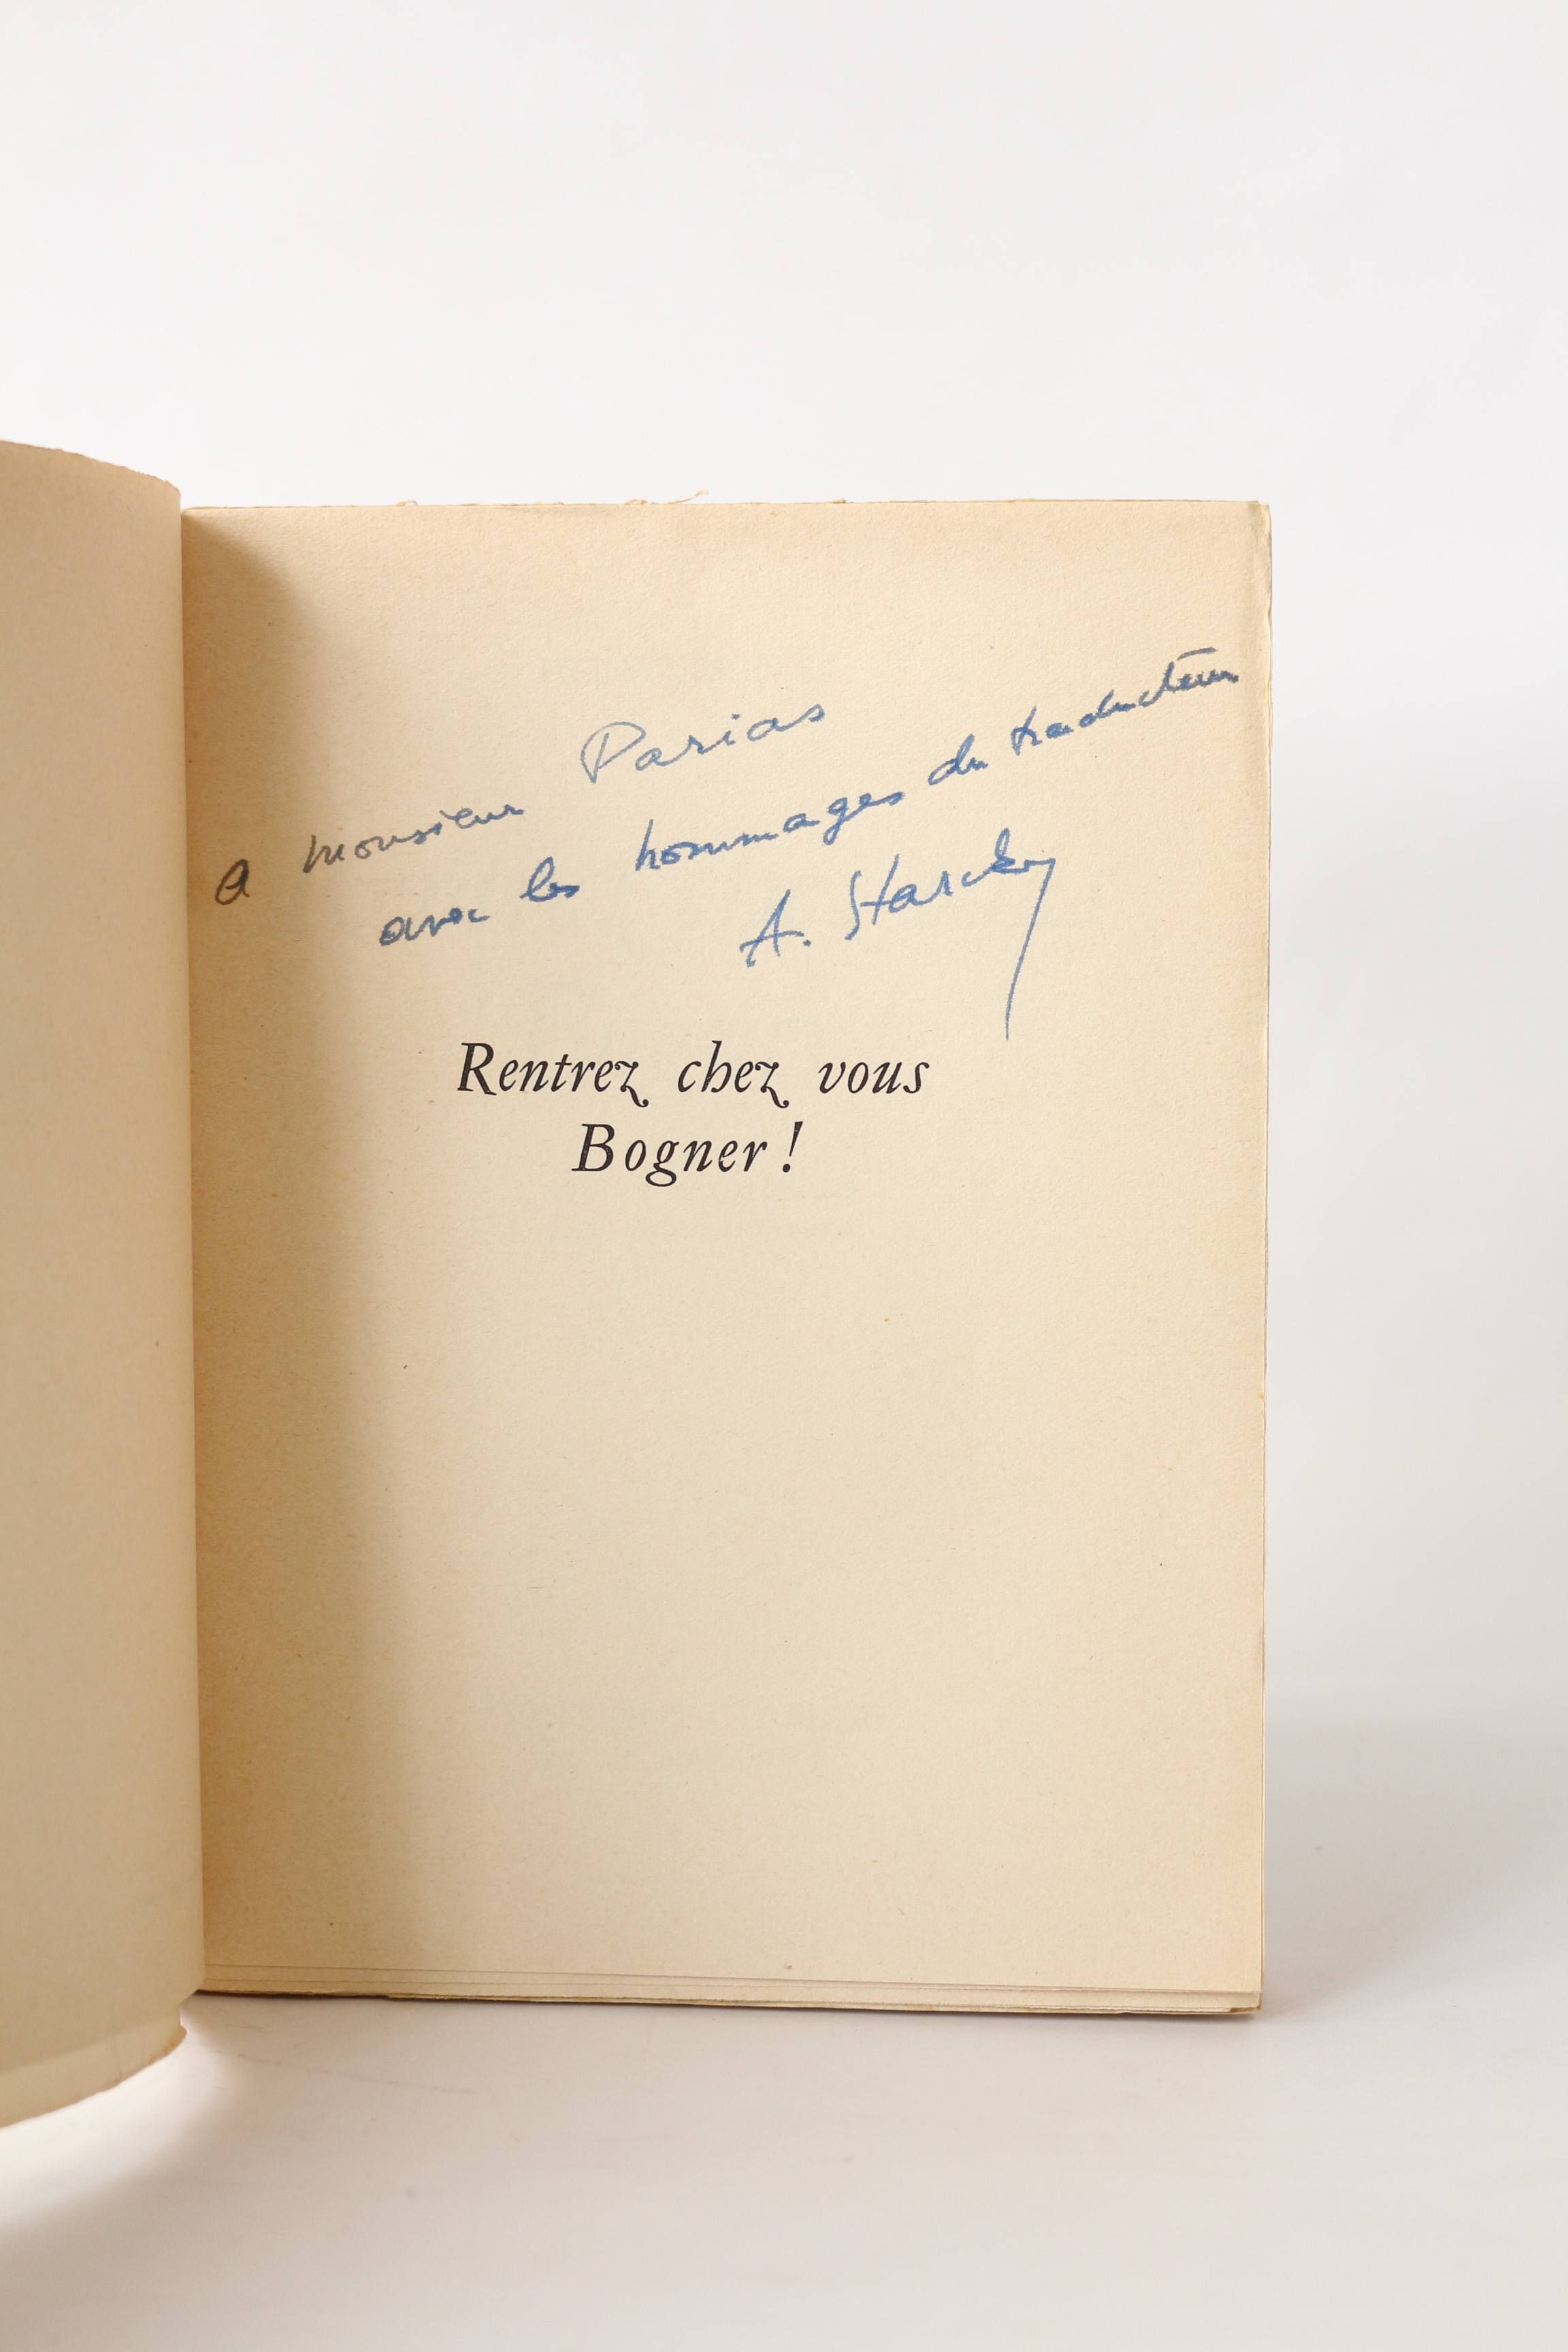 A monsieur Parias
avec les hommages du traducteur
A. Starcky
Rentrez chez vous
Bogner !